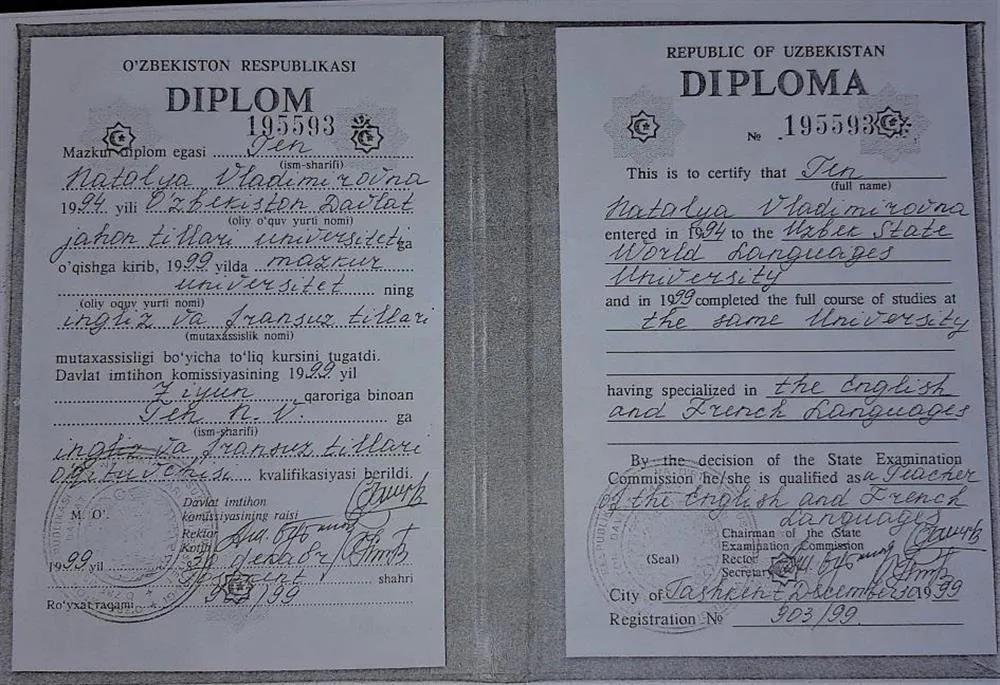 O'ZBEKISTON RESPUBLIKASI
DIPLOM
195593
Mazkur diplom egasi Ten
(ism-sharifi)
Natalya Vladimirovna
1994 yili O'zbekiston Davlat
(oliy o'quv yurti nomi)
jahon tillari universitetiga
o'qishga kirib, 1999 yilda mazkur
universitet ning
(oliy oquv yurti nomi)
ingliz va fransuz tillari
(mutaxassislik nomi)
mutaxassisligi bo'yicha to'liq kursini tugatdi.
Davlat imtihon komissiyasining 1999 yil
7 iyun qaroriga binoan
Ten N. V. ga
(ism-sharifi)
ingliz va fransuz tillari
o'qituvchisi kvalifikasiyasi berildi.
M. O'.
Davlat imtihon
komissiyasining raisi
Rektor
Kotib
1999 yil 30 dekabr
Toshkent shahri
Ro'yxat raqami 903/99
REPUBLIC OF UZBEKISTAN
DIPLOMA
№ 195593
This is to certify that Ten
(full name)
Natalya Vladimirovna
entered in 1994 to the Uzbek State
World Languages
University
and in 1999 completed the full course of studies at
the same University
having specialized in the English
and French Languages
By the decision of the State Examination
Commission he/she is qualified as a Teacher
of the English and French
Languages
Chairman of the State
Examination Commission
(Seal)
Rector
Secretary
City of Tashkent December 30 1999
Registration № 903/99.